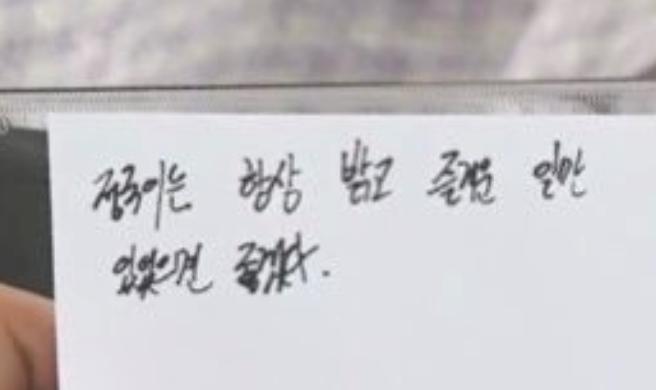 정국이는 항상 밝고 즐거운 일만
있었으면 좋겠다.